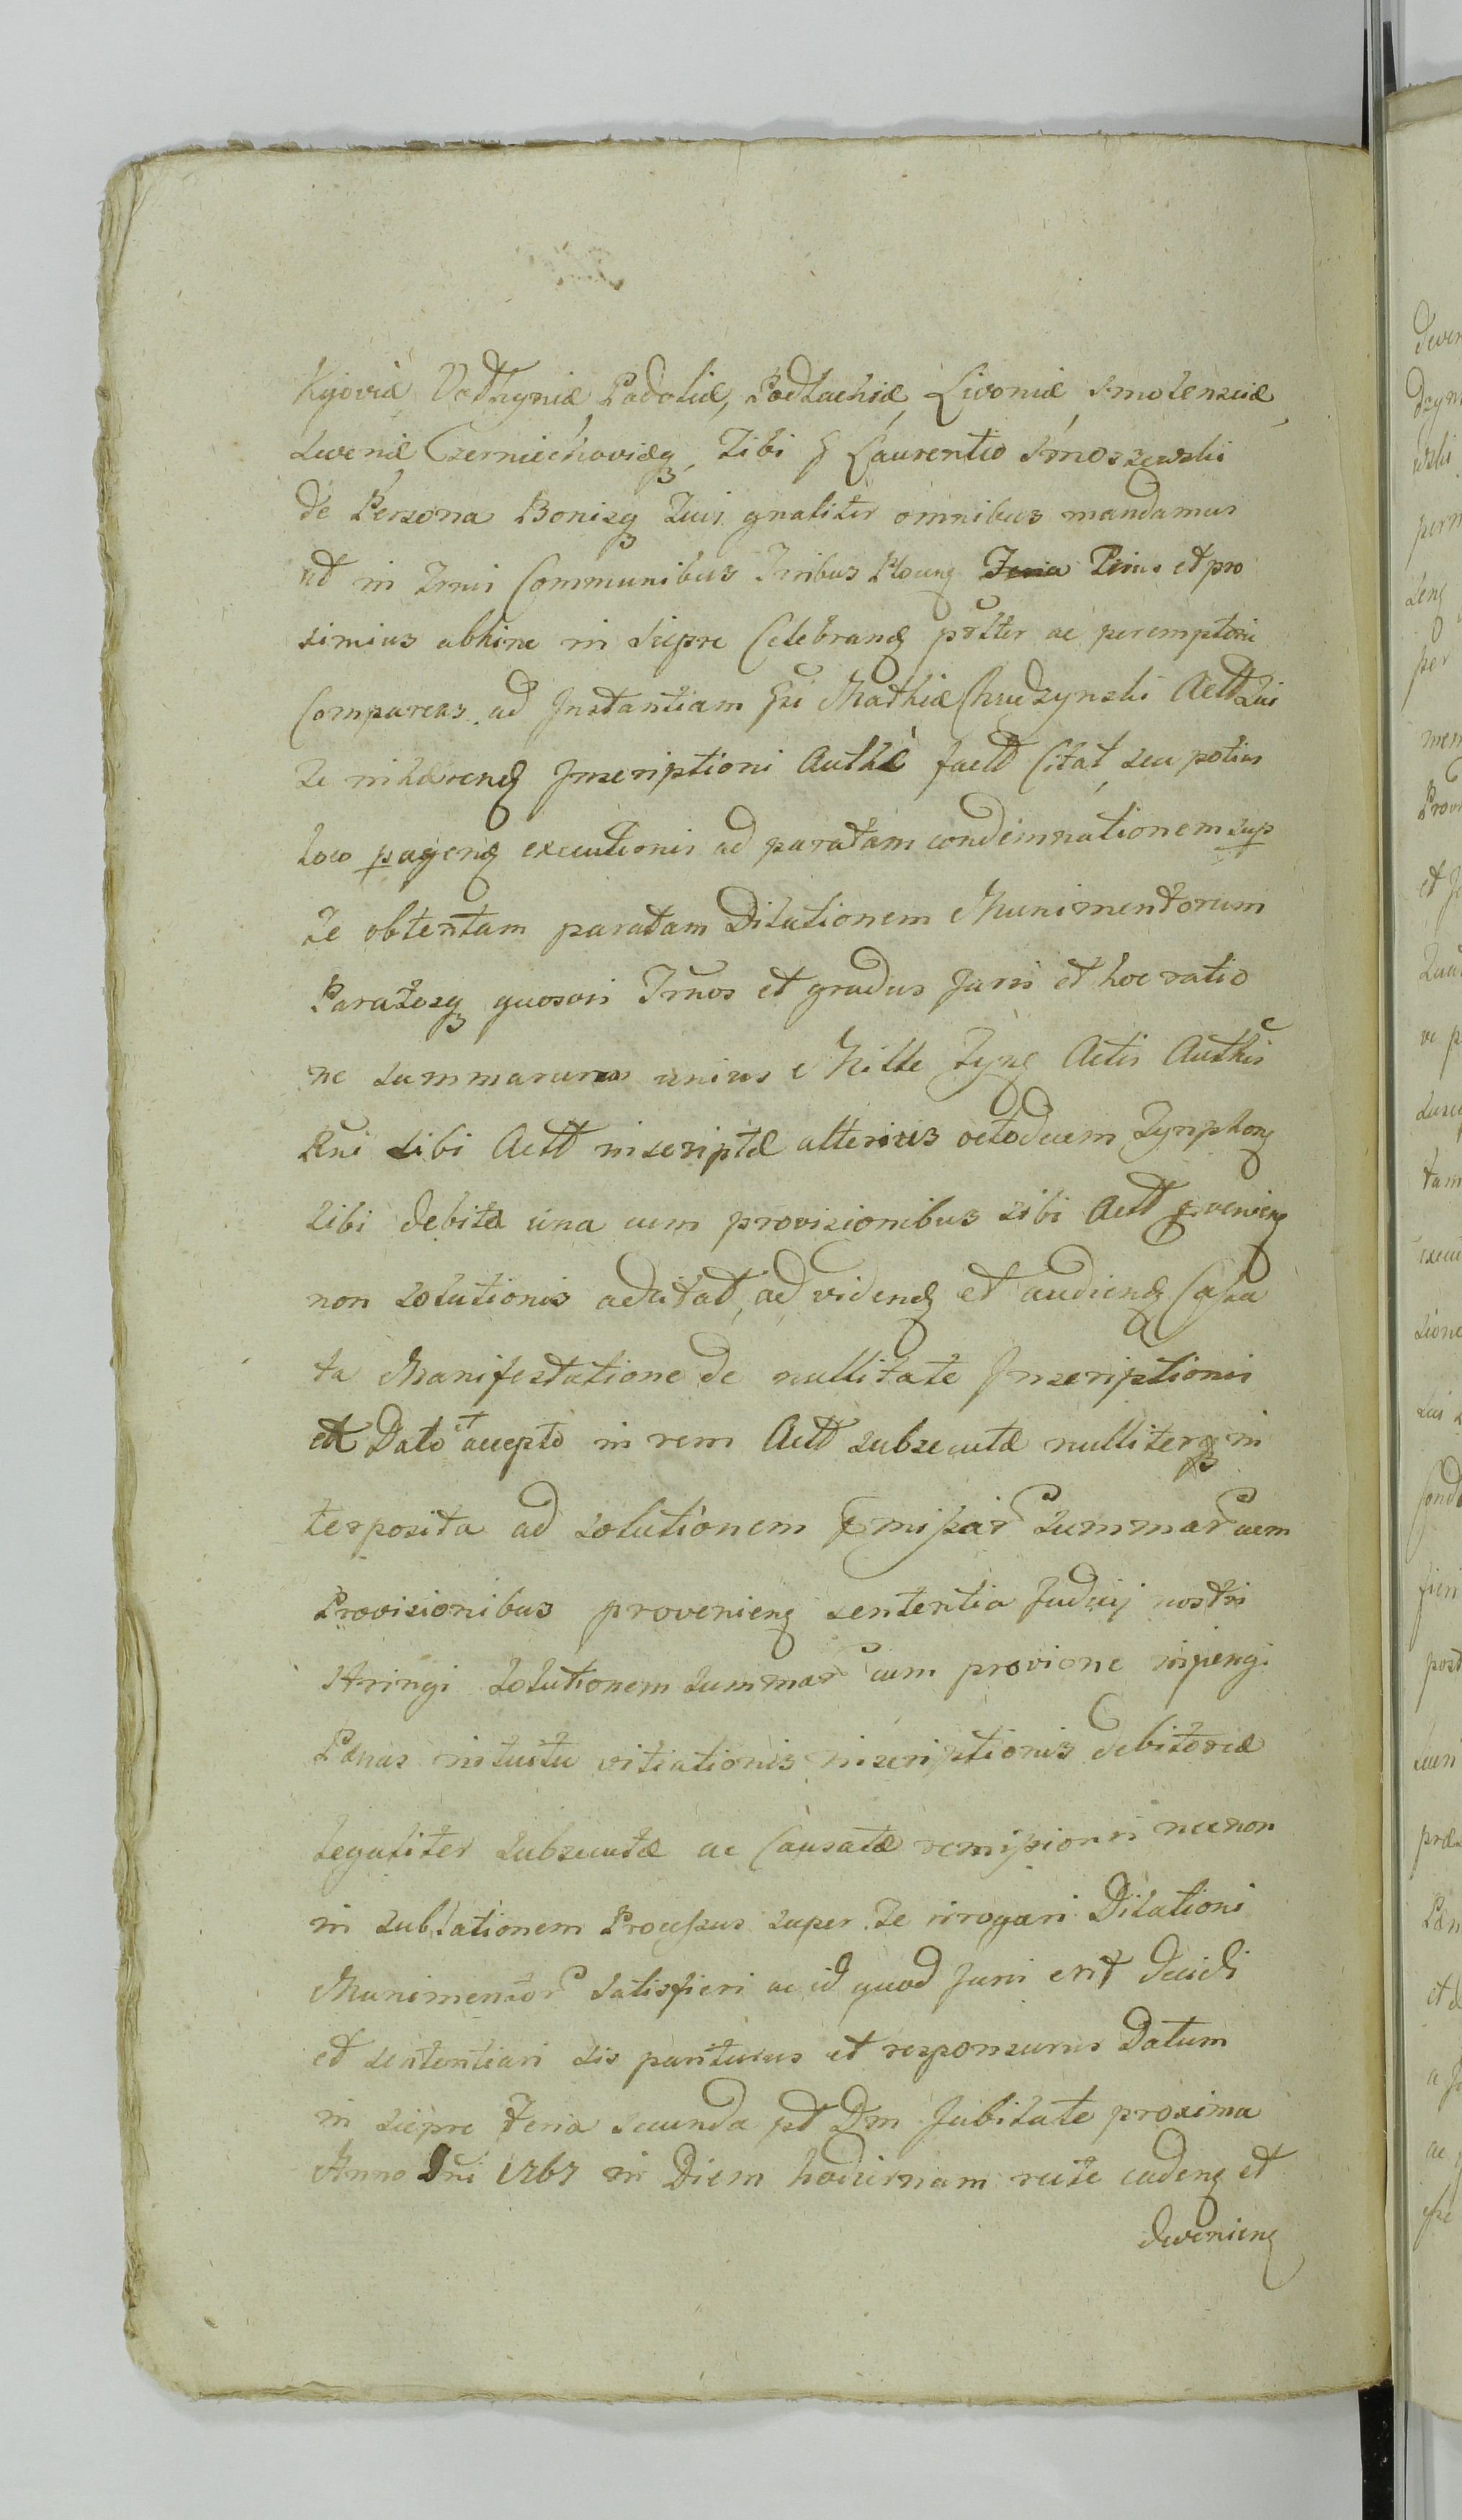 Kijoviæ Vothyniæ, Podoliæ, Podlachiæ, Livoniæ, Smolensciæ,
Seveniæ Czerniechoviæq́, Tibi G Laurentio Smoszewski
de Persona Bonisq́ Tuis gnaliter omnibus mandamus
ut in Tmis Communibus Tribus Ploceñ Feria Primis et pro
ximius abhinc in Siepre Celebrand psltr ac peremptorie
Compareas ad Instantiam Gsi Mathiæ Chudzynski Actt Qui
Te inhærend Inscriptioni Authæ factt Citat, seu potius
loco pagend executionis ad paratam condemnationem sup
Te obtentam paratam Dilationem Munimentorum
Paratosq́ quosvis Tmos et gradus Juris et hoc ratio
ne summarum unius Mille Tynf Actis Authis
Rni sibi Actt inscriptæ alterius octodecem Tynphon
sibi debitæ una cum provisionibus sibi Actt provenien
non solutionis adcitat, ad videnď et audienď Cassa
ta Manifestatione de nullitate Inscriptionis
et Dato et accepto in rem Actt subsecutæ nulliterq́ in
terposita ad solutionem præmissar Summar cum
Provisionibus provenien sententia Judicij nostri
stringi Solutionem Summar cum provione injungi
Pænas intuitu vitiationis inscriptionis debitoriæ
legaliter subsecutæ ac Causatæ remissionis necnon
in sublationem Processus super Te irrogari Dilationi
Munimentor satisfieri ac id quod Juris erit decidi
et sententiari sis pariturus et responsurus Datum
in Siepre Feria secunda pt Dm Jubilate proxima
Anno Dni 1767 in Diem hodiernam recte caden et
devenien